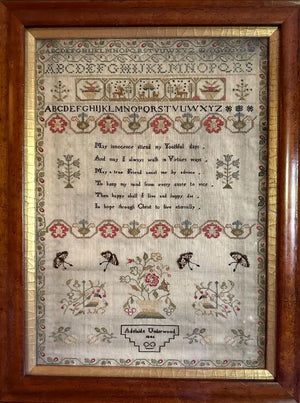 ABCDEFGHIJKLMNOPQRS
ABCDEFGHIJKLMNOPQRSTUVWXYZ
May innocence attend my Youthful days
And may I always walk in Virtues ways
May a true Friend assist me by advice
To keep my mind from every snare to vice
Then happy shall I live and happy die
In hope through Christ to live eternally
Adelaide Underwood